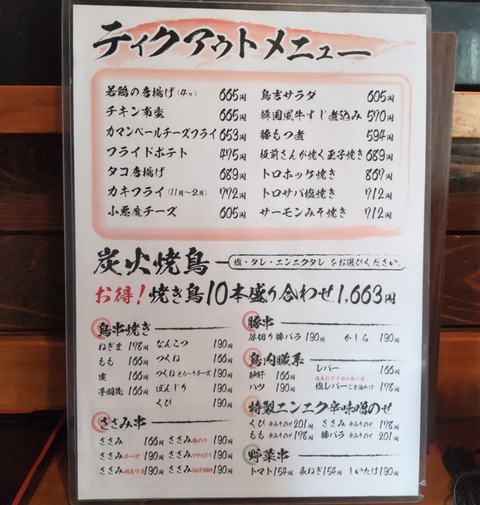 ティクアウトメニュー
若鶏の唐揚げ(4ヶ) 665円
チキン南蛮 665円
カマンベールチーズフライ 653円
フライドポテト 475円
タコ唐揚げ 689円
カキフライ(11月〜2月) 772円
小悪魔チーズ 605円
鳥吉サラダ 605円
韓国風牛すじ煮込み 570円
豚もつ煮 594円
板前さんが焼く玉子焼き 689円
トロホッケ焼き 867円
トロサバ塩焼き 712円
サーモンみそ焼き 712円
炭火焼鳥 塩・タレ・ニンニクタレ をお選びください。
お得!焼き鳥10本盛り合わせ1,663円
鳥串焼き
ねぎま 178円
もも 166円
皮 166円
手羽先 166円
なんこつ 190円
つくね 190円
つくねとろ〜りチーズ 190円
ぼんじり 190円
くび 190円
ささみ串
ささみ 166円
ささみチーズ 190円
ささみ明太マヨ 190円
ささみ梅のり 190円
ささみワサイのり 190円
ささみ柚子胡椒 190円
豚串
厚切り豚バラ 190円
かしら 190円
鳥内臓系
砂肝 166円
ハツ 190円
レバー 166円
塩レバーごま油かけ 178円
特製ニンニク辛味噌のせ
くび 辛みそのせ 201円
もも 辛みそのせ 178円
ささみ 辛みそのせ 178円
豚バラ 辛みそのせ 201円
野菜串
トマト 154円
長ねぎ 154円
しいたけ 190円